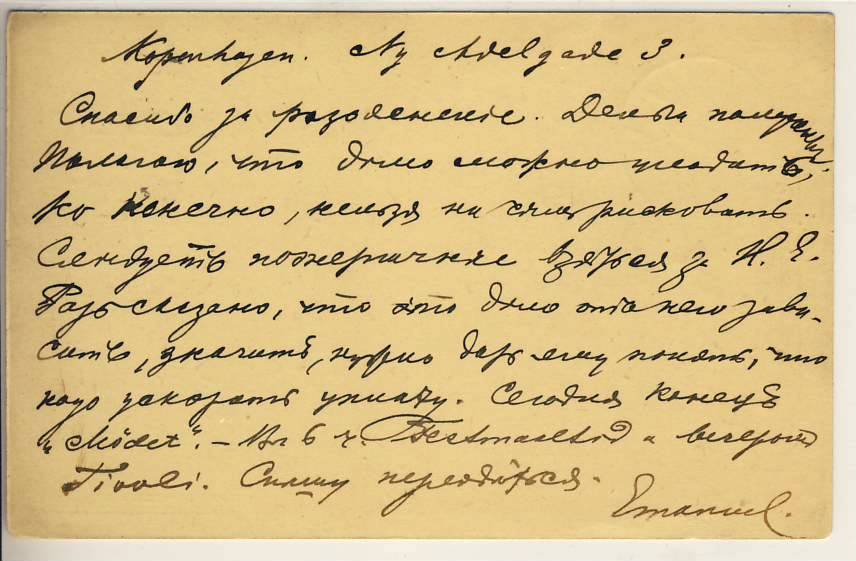 Kopenhagen. Ny Adelgade 3.
Спасибо за разъясненіе. Деньги получены.
Полагаю, что дело можно уладить,
но конечно, нельзя ни чѣмъ рисковать.
Слѣдуетъ взяться за Н. Е.
Разъ сказано, что это дѣло отъ него зави-
ситъ, значитъ, нужно дать ему понять, что
надо ускорить уплату. Сегодня конецъ
„Mödet“. – Въ 6 ч. Festmaaltid а вечеромъ
Tivoli. Спѣшу переодѣться.
Emanuel.